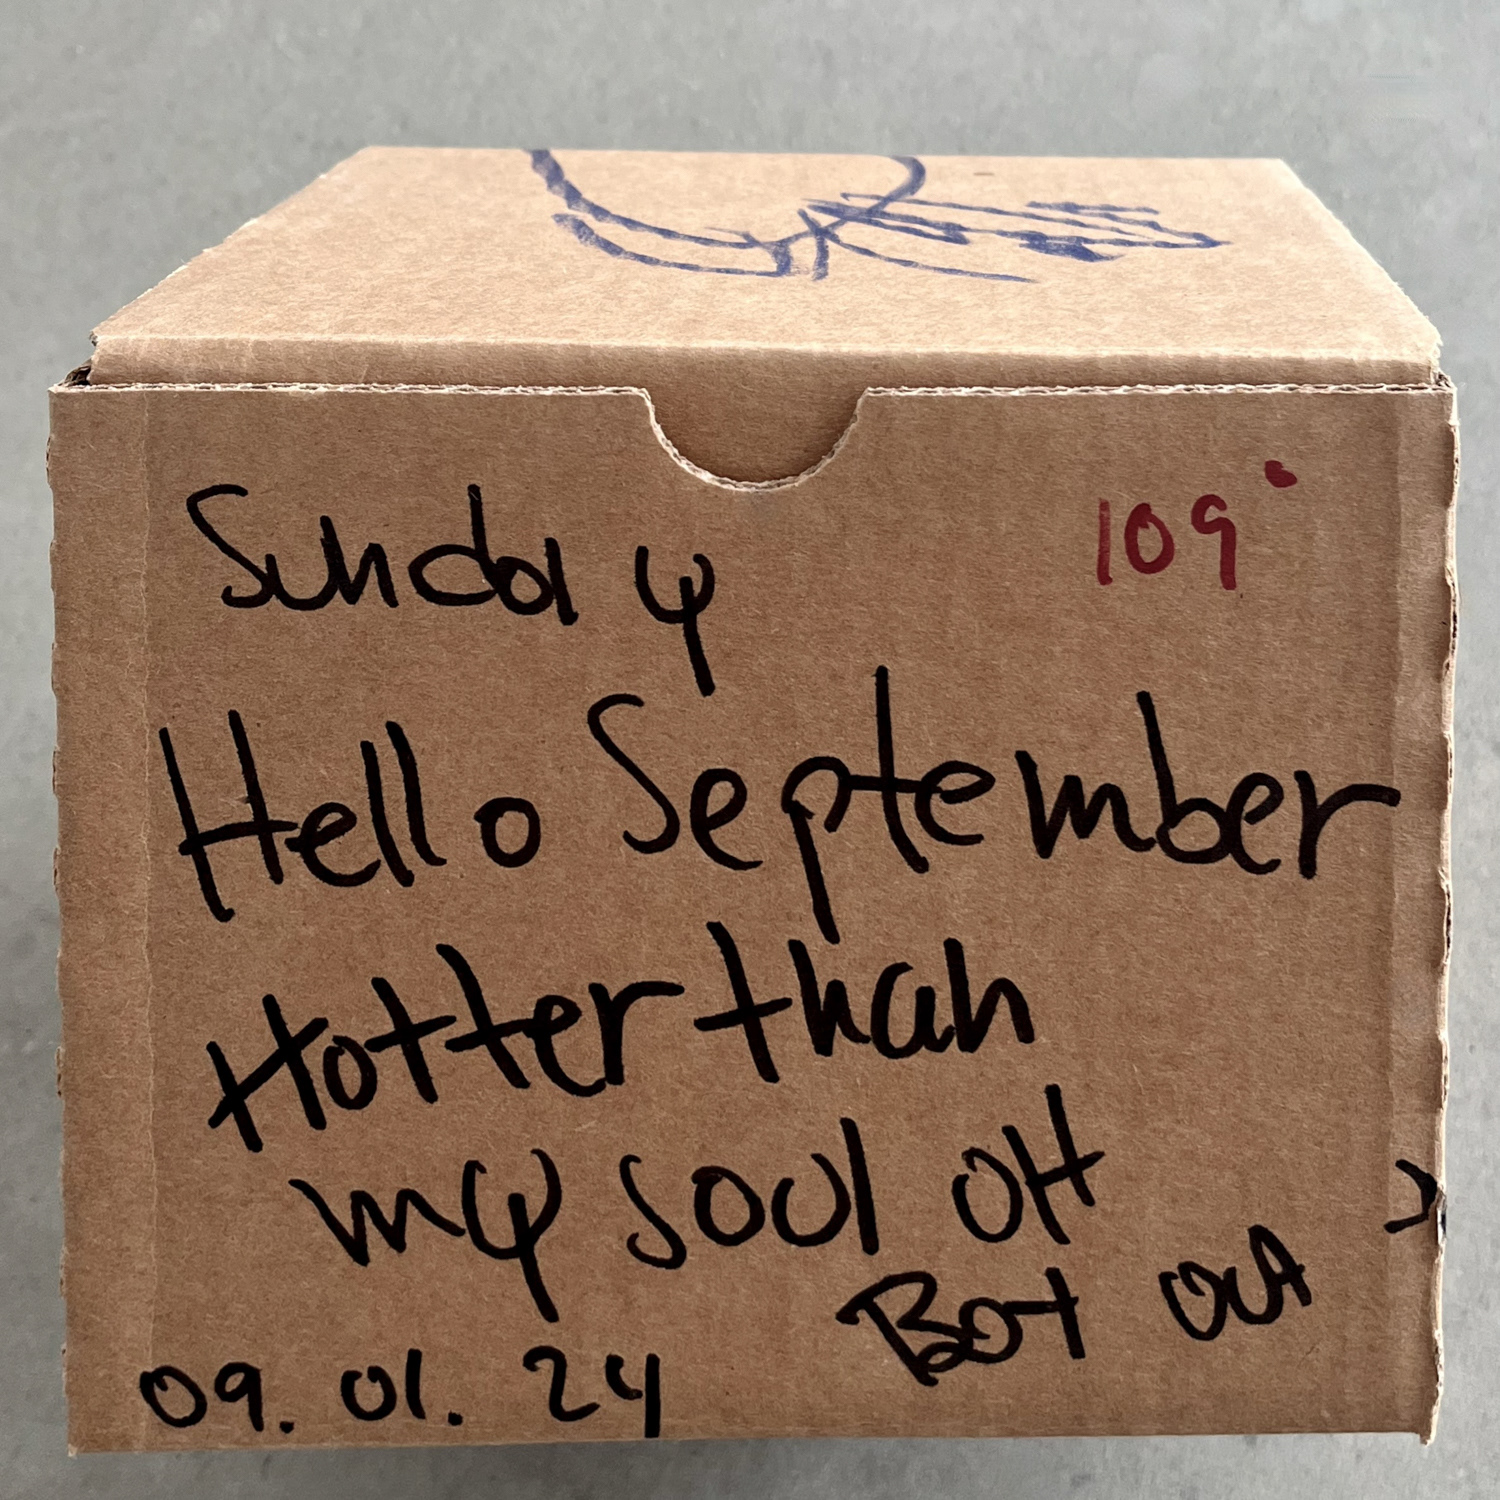 Sunday
109°
Hello September
Hotter than
my soul OH
Bot out
09. 01. 24